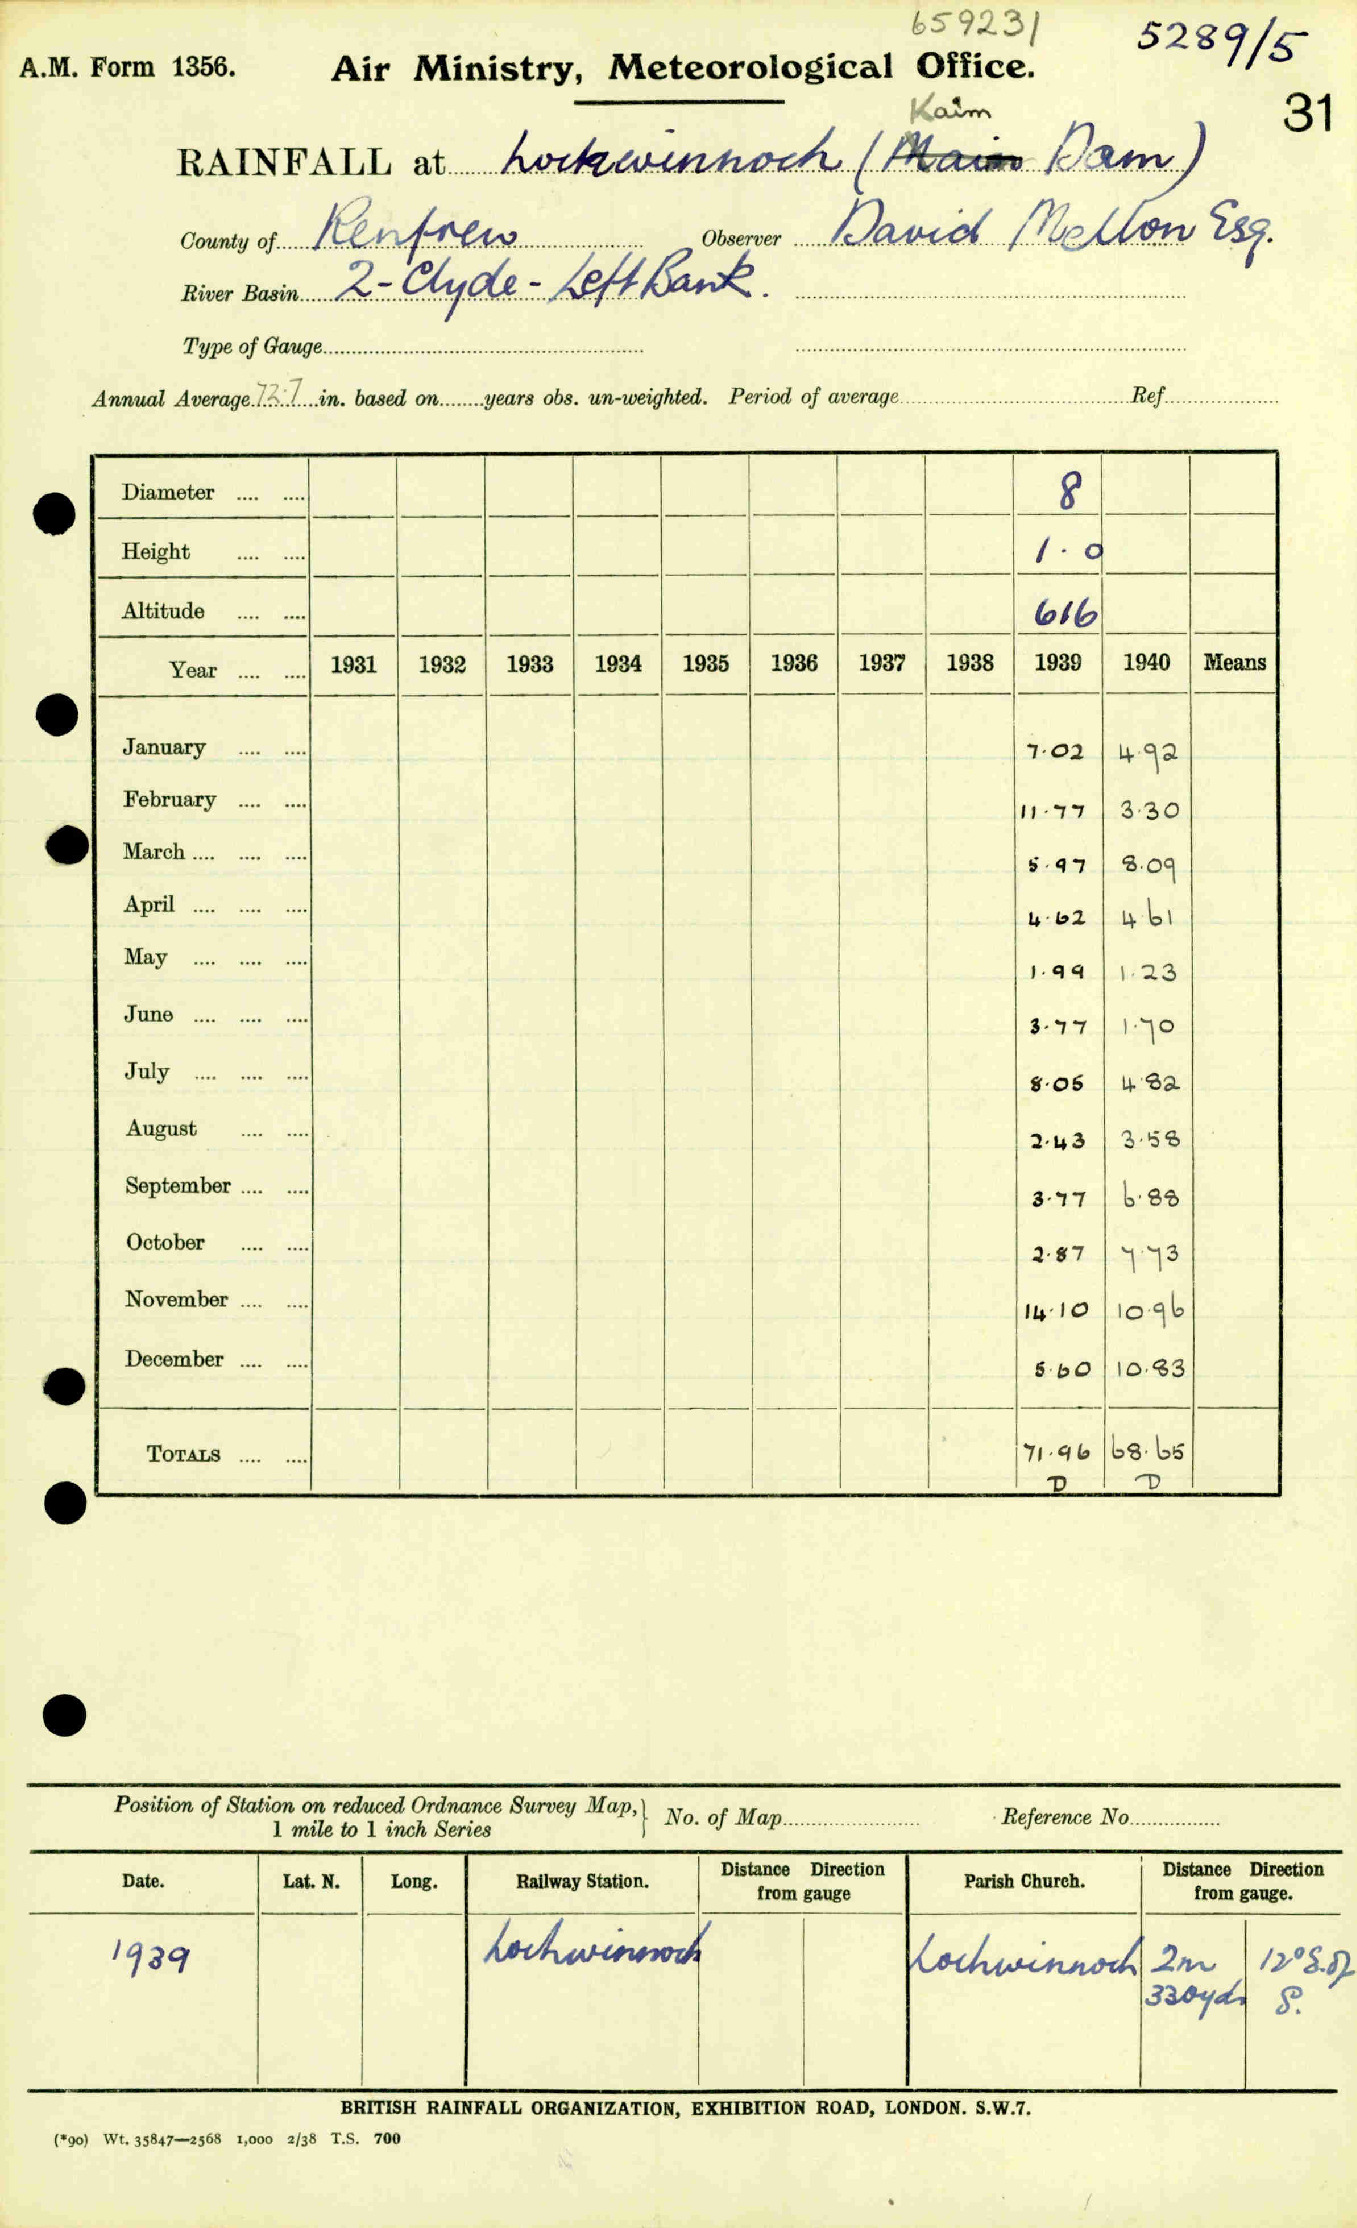 659231
5289/5
A.M. Form 1356. Air Ministry, Meteorological Office.
31
Kaim
RAINFALL at Lochwinnoch (Main Dam)
County of Renfrew Observer David Mellon Esq.
River Basin 2-Clyde-Left Bank.
Type of Gauge
Annual Average 72.7 in. based on years obs. un-weighted. Period of average Ref.
Diameter 8
Height 1.0
Altitude 616
Year 1931 1932 1933 1934 1935 1936 1937 1938 1939 1940 Means
January 7.02 4.92
February 11.77 3.30
March 5.97 8.09
April 4.62 4.61
May 1.99 1.23
June 3.77 1.70
July 8.05 4.82
August 2.43 3.58
September 3.77 6.88
October 2.87 7.73
November 14.10 10.96
December 5.60 10.83
TOTALS 71.96 68.65
D D
Position of Station on reduced Ordnance Survey Map, 1 mile to 1 inch Series } No. of Map Reference No.
Date. Lat. N. Long. Railway Station. Distance Direction from gauge Parish Church. Distance Direction from gauge.
1939 Lochwinnoch Lochwinnoch 2m 12° E. of
330yds S.
BRITISH RAINFALL ORGANIZATION, EXHIBITION ROAD, LONDON. S.W.7.
(*90) Wt. 35847—2568 1,000 2/38 T.S. 700